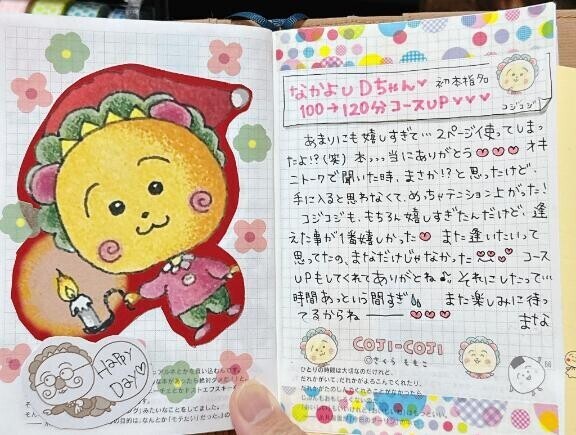 なかよし Dちゃん♥ 初本指名
100→120分 コースUP♥♥♥
コジコジ
あまりにも嬉しすぎて… 2ページ使ってしまっ
たよ!?(笑) 本っっ当にありがとう♡♡♡ オキ
ニトークで聞いた時、まさか!?と思ったけど、
手に入ると思わなくて、めっちゃテンション上がった!
コジコジも、もちろん嬉しすぎたんだけど、逢
えた事が1番嬉しかった♡ また逢いたいって
思ってたの、まなだけじゃなかった♡♡♡ コース
UPもしてくれてありがとね♪ それにしたって…
時間あっという間すぎ また楽しみに待っ
てるからね ―― ♡♡♡ まな
COJI-COJI
©さくらももこ
ひとりの時間は大切なのだけれど、
だれかがいて、だれかがよろこんでくれたり、
66
HAPPY
DAY♥
みたいなことをしてました。
の目的は、なんとか「モテたい」だった。